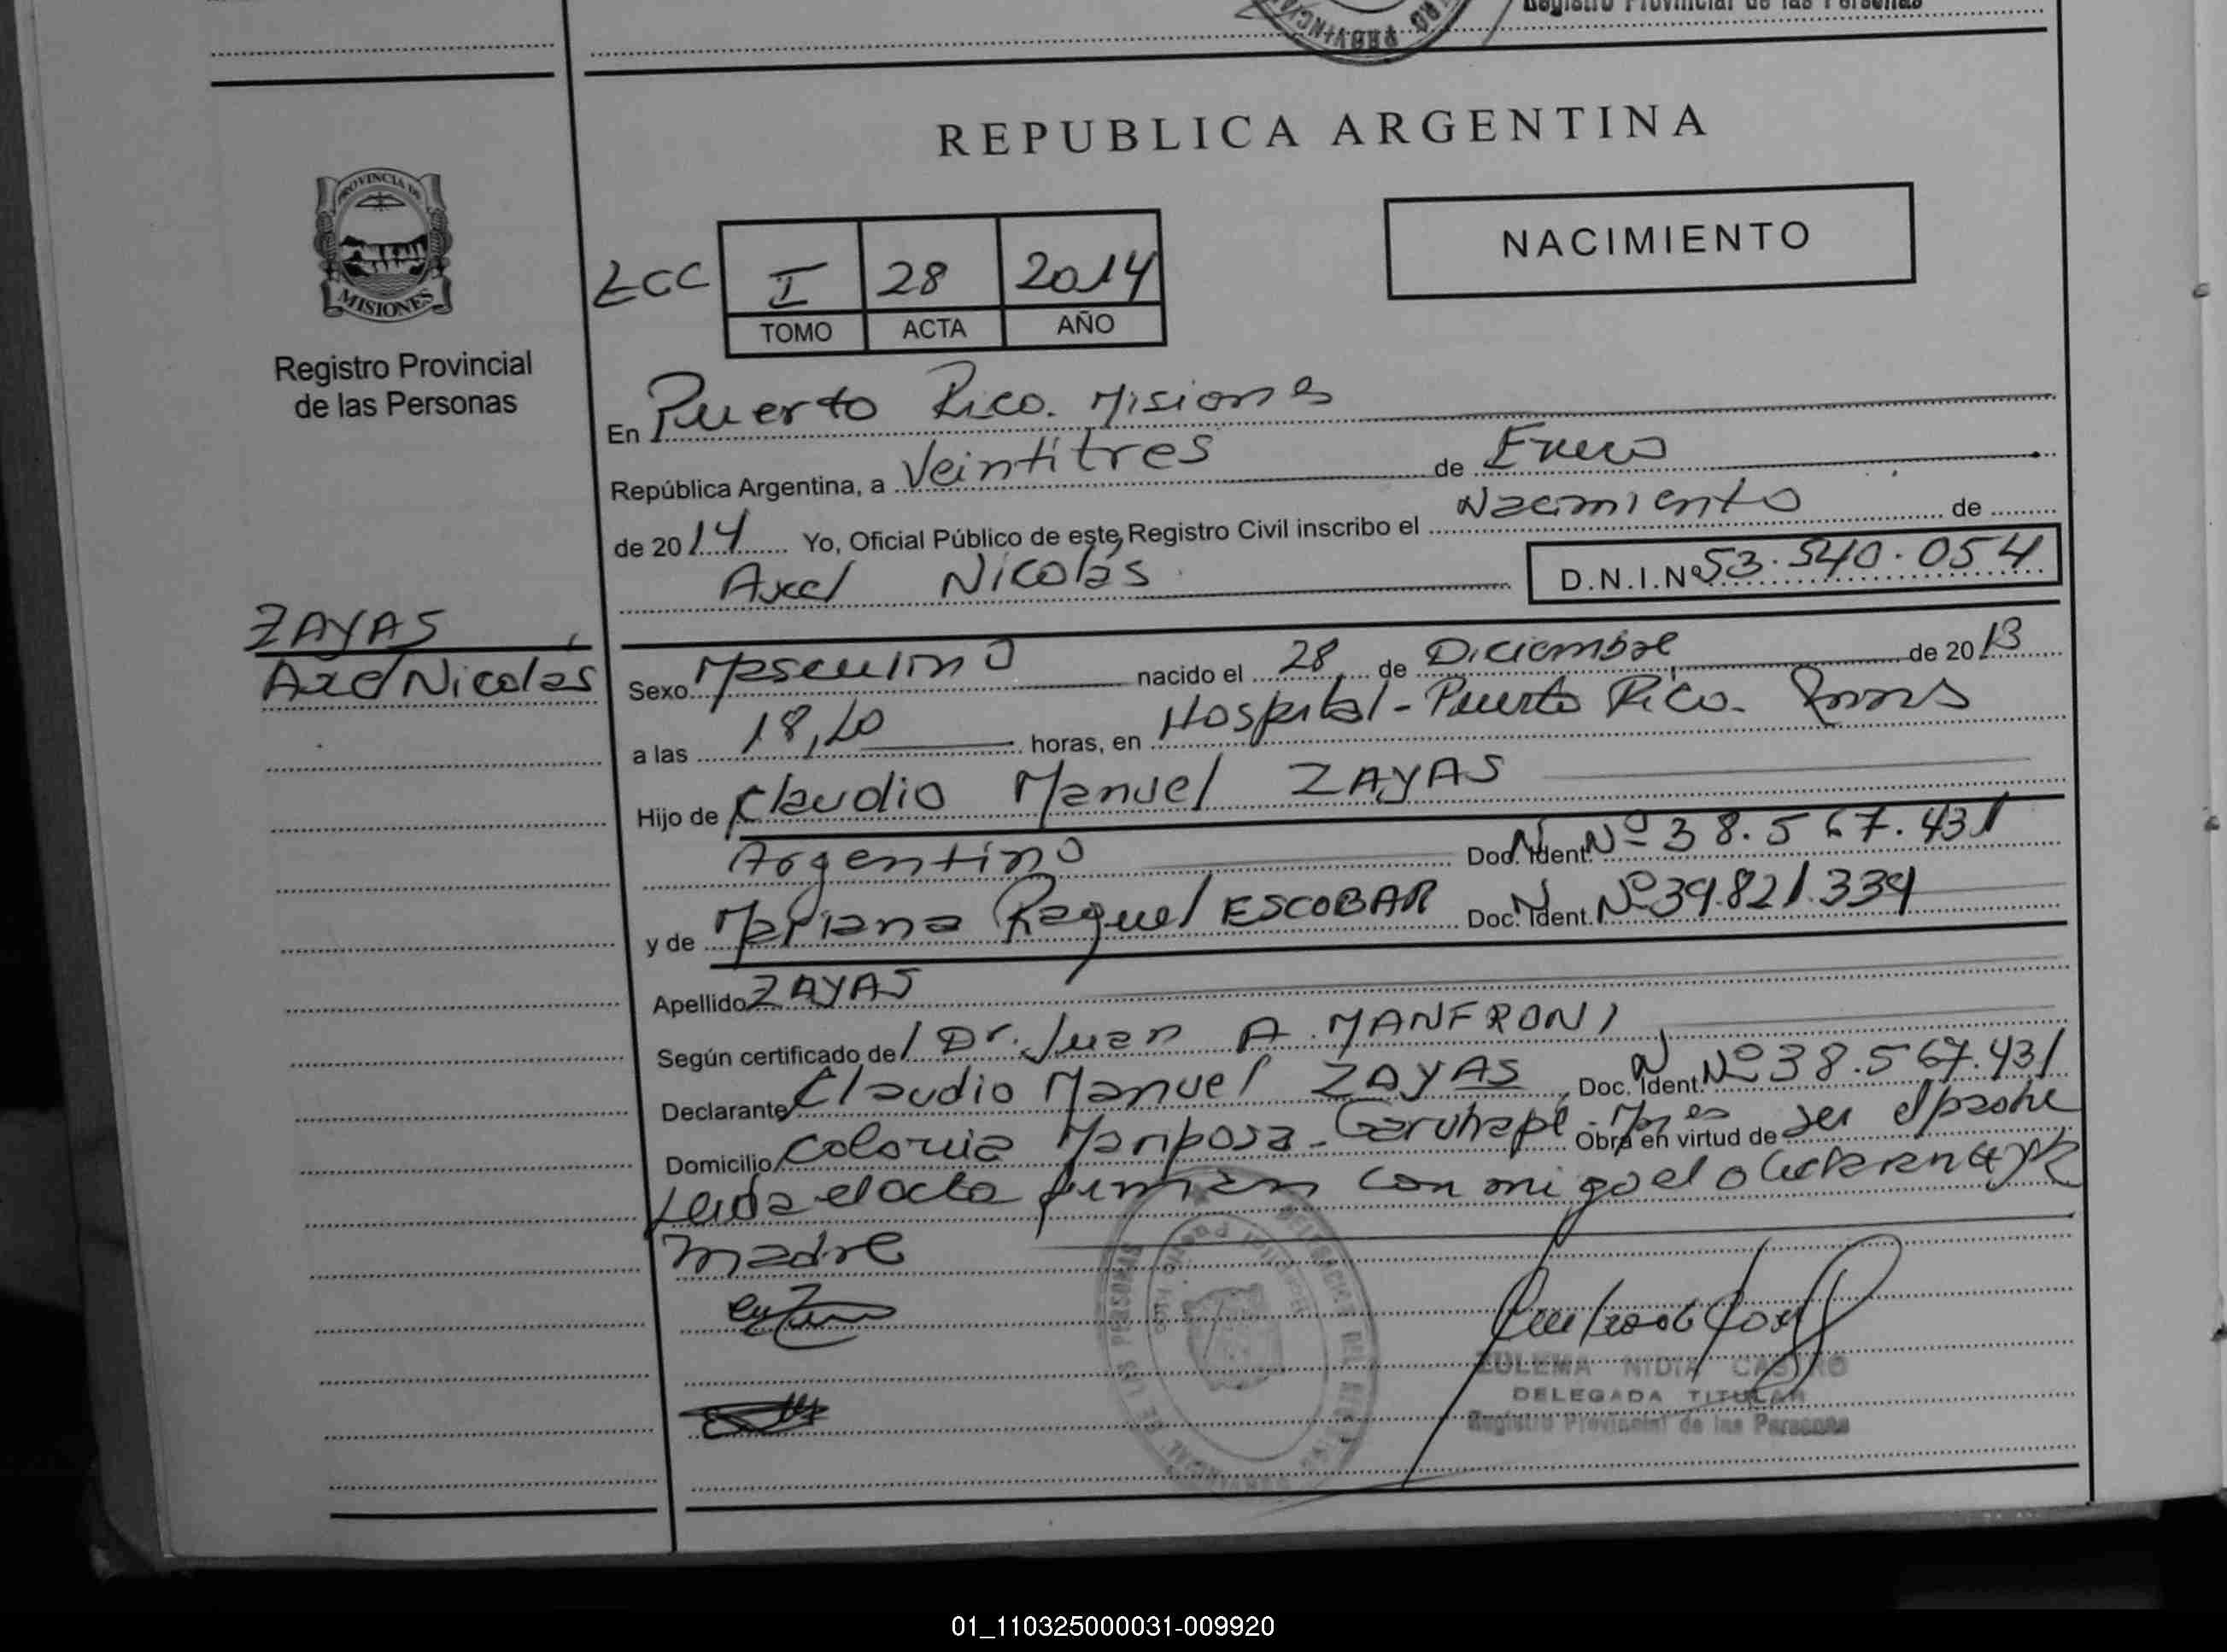 Registro Provincial de las Personas
REPUBLICA ARGENTINA
PROVINCIA DE
MISIONES
Registro Provincial
de las Personas
NACIMIENTO
I 28 2014
TOMO ACTA AÑO
En Puerto Rico. Misiones
República Argentina, a Veintitres de Enero
de 2014 Yo, Oficial Público de este Registro Civil inscribo el Nacimiento de
Axel Nicolás D.N.I.Nº 53.540.054
ZAYAS,
Axel Nicolas
Sexo Masculino nacido el 28 de Diciembre de 2013
a las 18,20 horas, en Hospital - Puerto Rico.
Hijo de Claudio Manuel ZAYAS
Argentino Doc. Ident. Nº 38.567.431
y de Mariana Raquel ESCOBAR Doc. Ident. Nº 39.821.339
Apellido ZAYAS
Según certificado del Dr. Juan A. MANFRONI
Declarante Claudio Manuel ZAYAS, Doc. Ident. Nº 38.567.431
Domicilio Colonia Mariposa - Garuhapé - Mnes Obra en virtud de ser el padre
Leida el acta firman con migo el declarante y la
madre
ZULEMA NIDIA CASTRO
DELEGADA TITULAR
Registro Provincial de las Personas
01_110325000031-009920